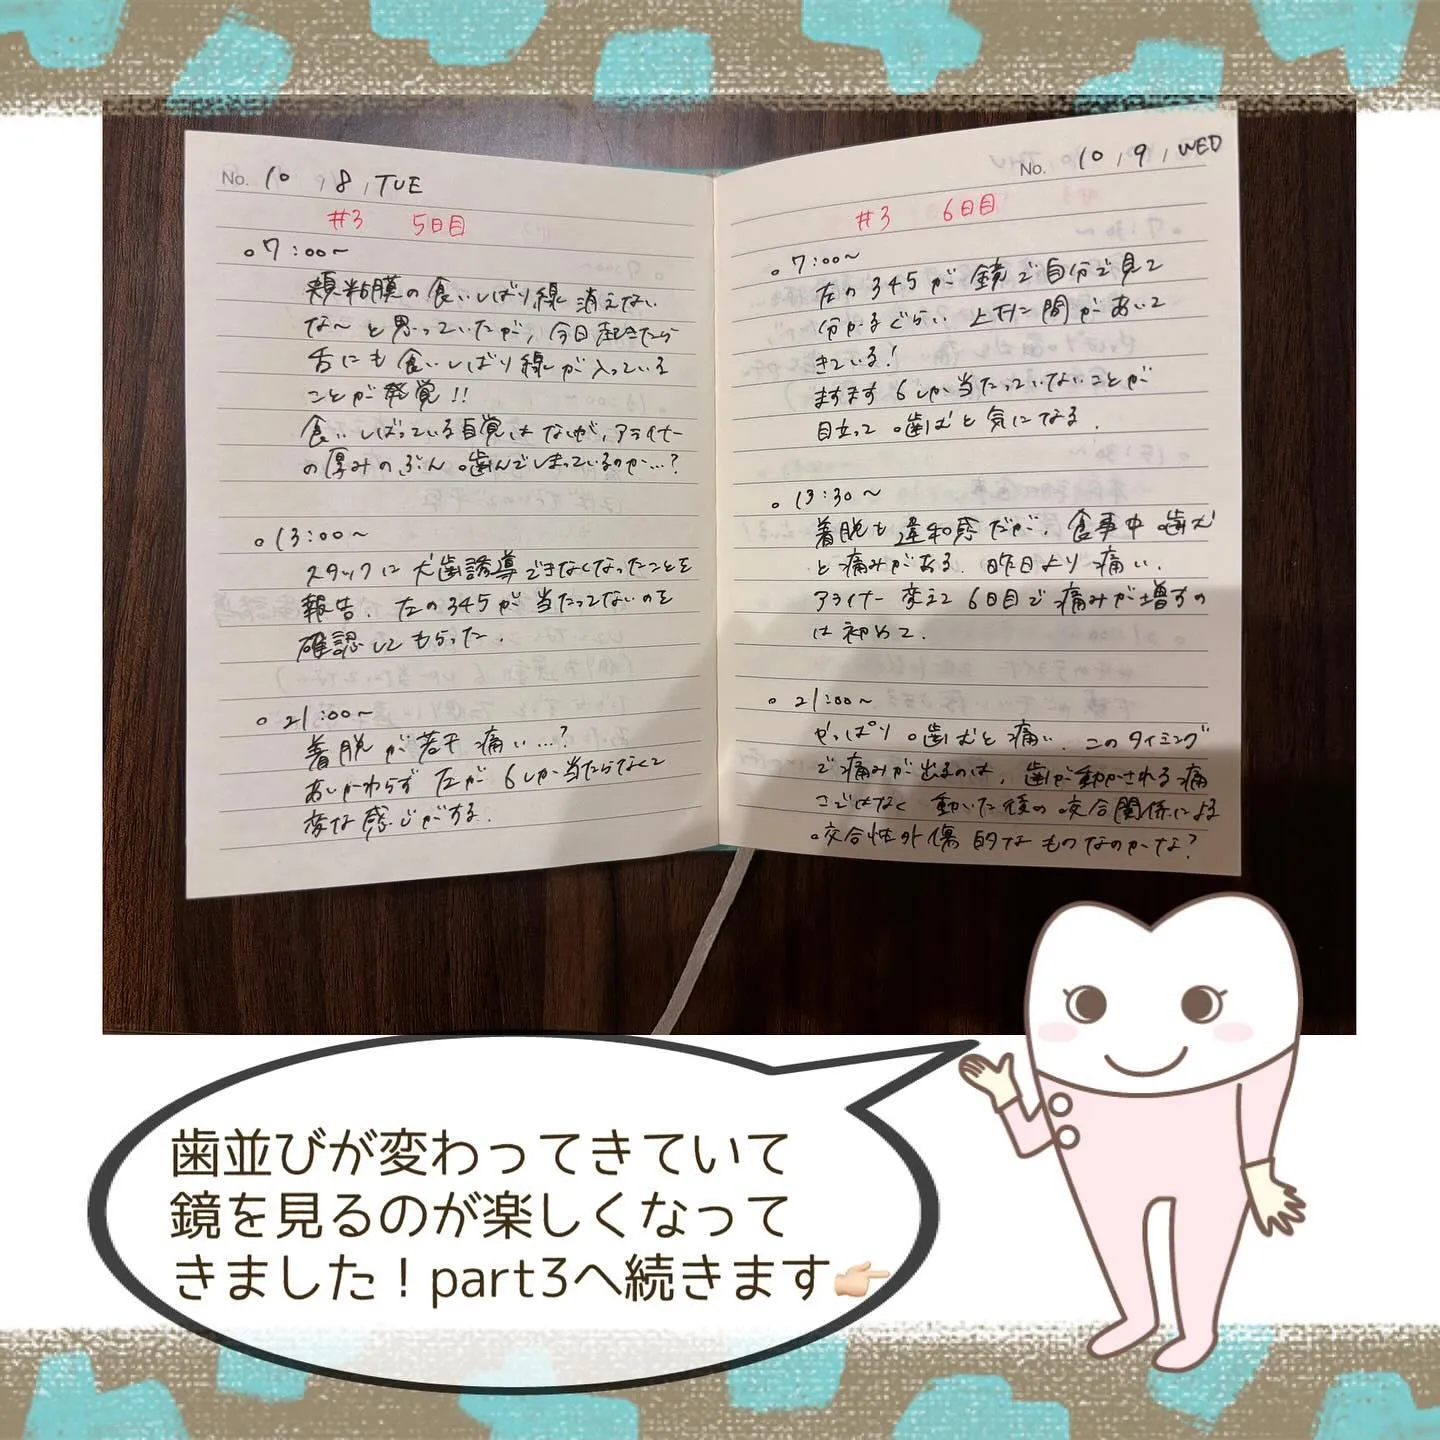 No. 10, 8, TUE
#3 5日目
○7:00~
頬粘膜の食いしばり線消えない
な〜と思っていたが、今日起きたら
舌にも食いしばり線が入っている
ことが発覚!!
食いしばっている自覚はないが、アライナー
の厚みのぶん噛んでしまっているのか…?
○13:00~
スタッフに犬歯誘導できなくなったことを
報告。左の345が当たってないのを
確認してもらった。
○21:00~
着脱が若干痛い…?
あいかわらず左が6しか当たらなくて
変な感じがする。
No. 10, 9, WED
#3 6日目
○7:00~
左の345が鏡で自分で見て
分かるぐらい上下に間があいて
きている!
ますます6しか当たっていないことが
目立って噛むと気になる。
○13:30~
着脱も違和感だが、食事中噛む
と痛みがある。昨日より痛い。
アライナー変えて6日目で痛みが増すの
は初めて。
○21:00~
やっぱり噛むと痛い。このタイミング
で痛みが出るのは、歯が動かされる痛
みではなく動いた後の咬合関係による
咬合性外傷的なものなのかな?
歯並びが変わってきていて
鏡を見るのが楽しくなって
きました!part3へ続きます👉🏻